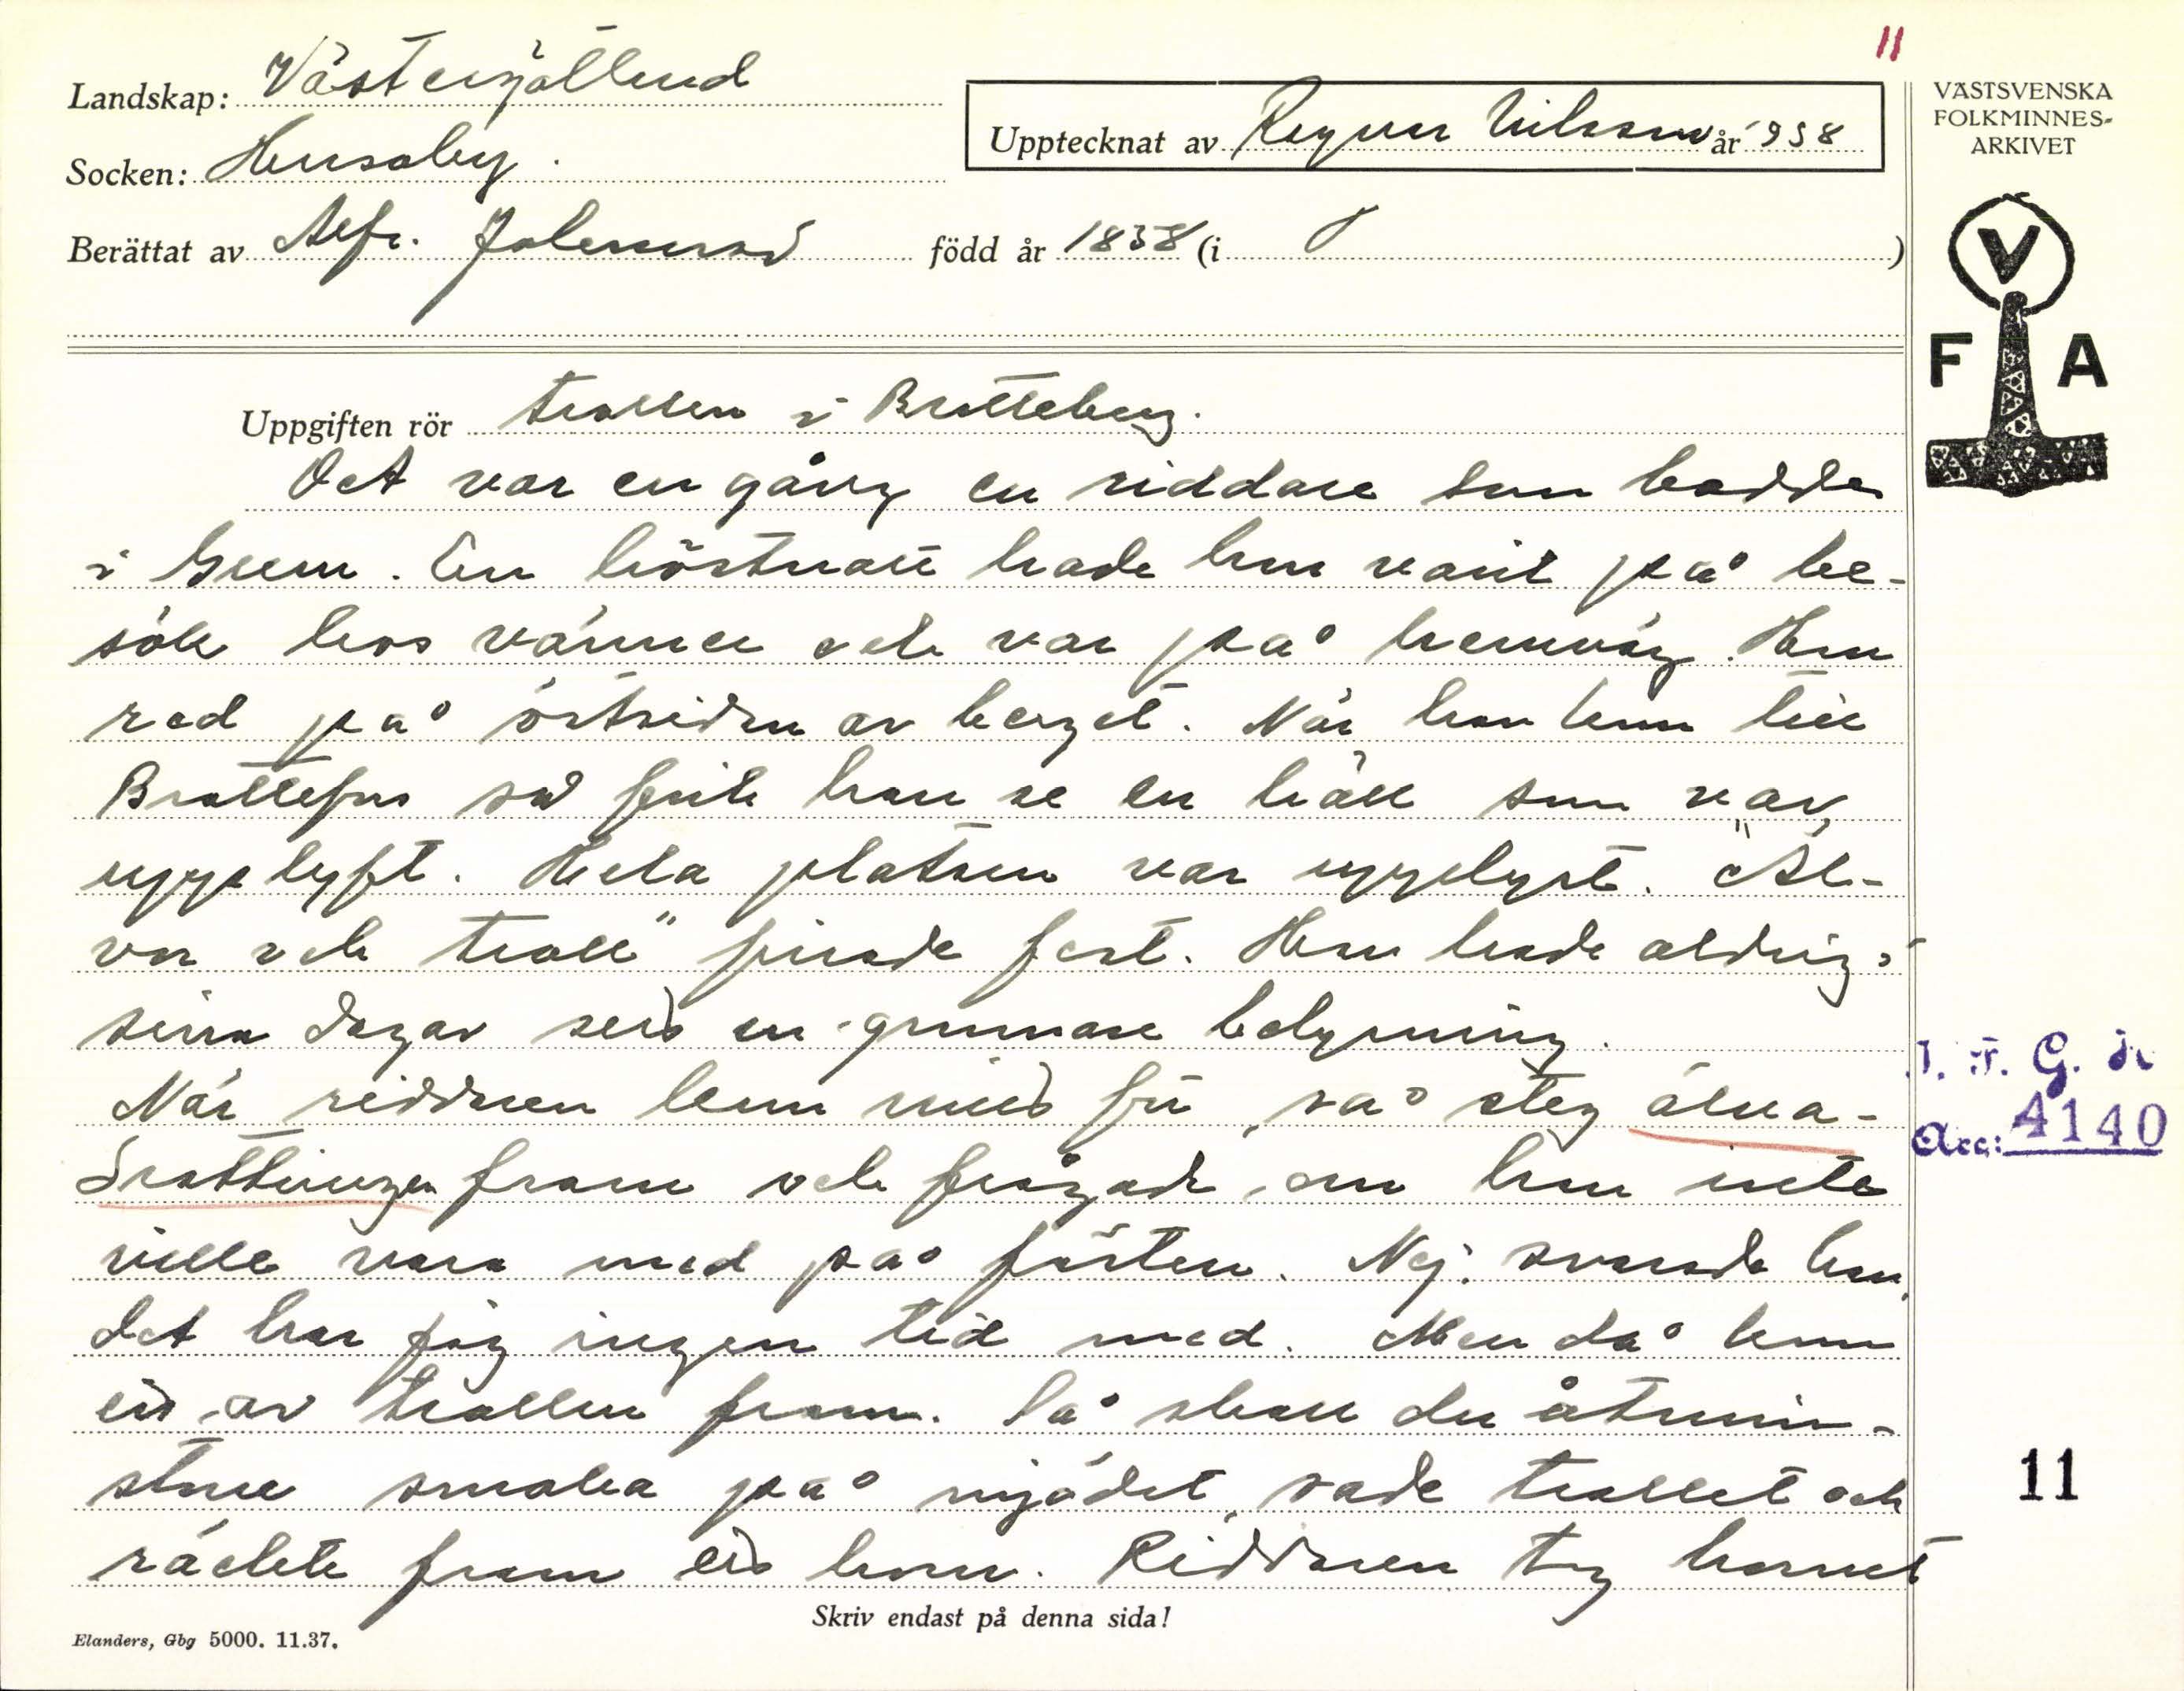 11
Landskap: Västergötland
Socken: Husaby.
Upptecknat av Ragnar Nilsson år 1938
Berättat av Alfr. Johansson född år 1858 (i )
VÄSTSVENSKA
FOLKMINNES-
ARKIVET
V
F A
Uppgiften rör trollen i Bratteberg.
Det var en gång en riddare som bodde
i Geem. En höstnatt hade han varit på be-
sök hos vänner och var på hemväg. Han
red på östsidan av berget. När han kom till
Brattefors så fick han se en häll som var
upplyft. Hela platsen var upplyst. "Äl-
vor och troll" firade fest. Han hade aldrig i
sina dagar sett en grannare belysning.
När riddaren kom mitt för, så steg älva-
drottningen fram och frågade, om han inte
ville vara med på festen. Nej. svarade han,
det har jag ingen tid med. Men då kom
ett av trollen fram. Så skall du åtmin-
stone smaka på mjödet, sade trollet och
räckte fram ett horn. Riddaren tog hornet
I. F. G. nr
Acc: 4140
11
Skriv endast på denna sida!
Elanders, Gbg 5000. 11.37.